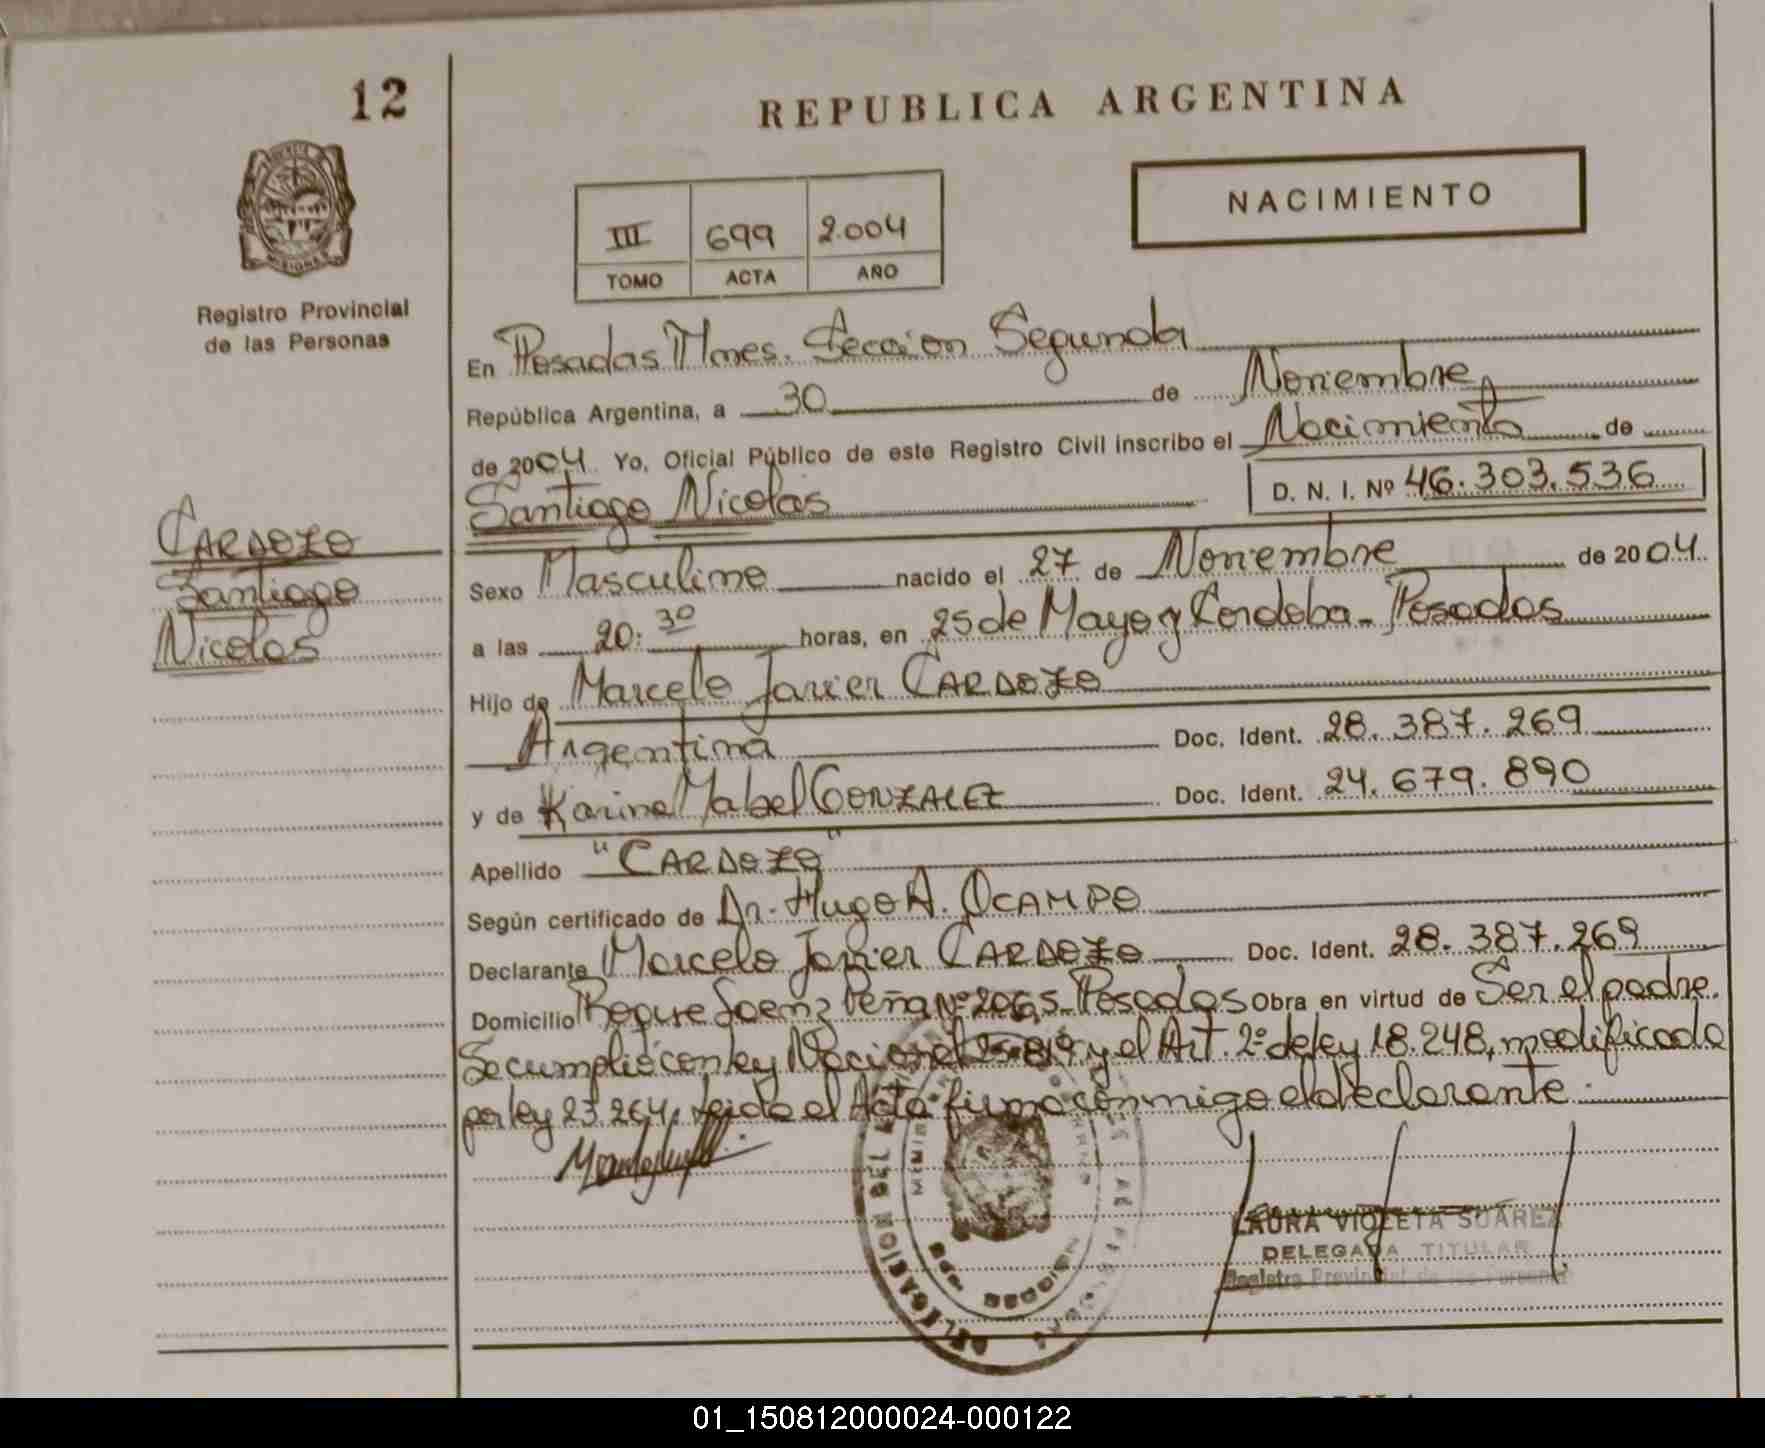 12
REPUBLICA ARGENTINA
NACIMIENTO
III 699 2.004
TOMO ACTA AÑO
MISIONES
Registro Provincial
de las Personas
En Posadas Mnes. Sección Segunda
República Argentina, a 30 de Noviembre
de 2004 Yo, Oficial Público de este Registro Civil inscribo el Nacimiento de
Santiago Nicolás D. N. I. Nº 46.303.536
CARDOZO
Santiago
Nicolás
Sexo Masculino nacido el 27 de Noviembre de 2004
a las 20:30 horas, en 25 de Mayo y Cordoba - Posadas
Hijo de Marcelo Javier CARDOZO
Argentina Doc. Ident. 28.387.269
y de Karina Mabel GONZALEZ Doc. Ident. 24.679.890
Apellido "CARDOZO"
Según certificado de Dr. Hugo A. OCAMPO
Declarante Marcelo Javier CARDOZO Doc. Ident. 28.387.269
Domicilio Roque Saenz Peña Nº 2065 - Posadas Obra en virtud de Ser el padre.
Se cumplió con ley Nacional 25.819 y el Art. 2º de ley 18.248, modificada
por ley 23.264, leida el Acta firma conmigo el declarante.
DELEGACION DEL
LAURA VIOLETA SUAREZ
DELEGADA TITULAR
Registro Provincial de las Personas
01_150812000024-000122